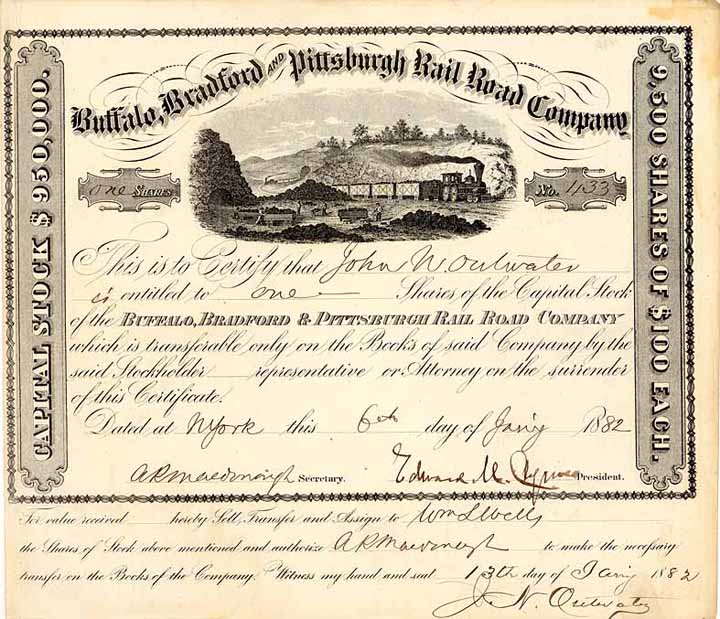 Buffalo, Bradford AND Pittsburgh Rail Road Company,
CAPITAL STOCK $950,000.
9,500 SHARES OF $100 EACH.
one SHARES
No. 433
This is to Certify that John N. Outwater
is entitled to one Shares of the Capital Stock
of the BUFFALO, BRADFORD & PITTSBURGH RAIL ROAD COMPANY
which is transferable only on the Books of said Company by the
said Stockholder representative or Attorney on the surrender
of this Certificate.
Dated at NYork this 6th day of Jany 1882
A R Macdonough Secretary. Edward President.
For value received hereby Sell, Transfer and Assign to Wm L Wells
the Shares of Stock above mentioned and authorize A R Macdonough to make the necessary
transfer on the Books of the Company. Witness my hand and seal 13th day of Jany 1882
J. N. Outwater